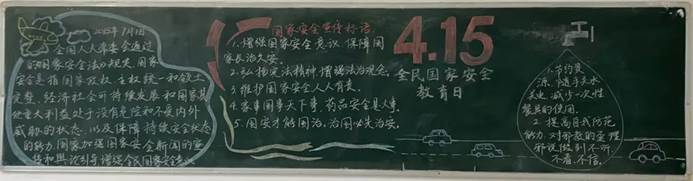 2015年7月1日
全国人大常委会通过
的《国家安全法》规定：国家
安全是指国家政权、主权、统一和领土
完整、经济社会可持续发展和国家其
他重大利益处于没有危险和不受内外
威胁的状态，以及保障持续安全状态
的能力。国家加强国家安全新闻的宣
传和舆论引导，增强全民国家安全意识
国家安全宣传标语
1.增强国家安全意识 保障国
家长治久安。
2.弘扬宪法精神，增强法治观念。
3.维护国家安全人人有责。
4.家事国事天下事，药品安全是大事。
5.国安才能国治，治国必先治安。
4.15
全民国家安全
教育日
节约资
源，随手关水
关电，减少一次性
餐具的使用。
2.提高自我防范
能力，对邪教的歪理
邪说做到不听、
不看、不信。